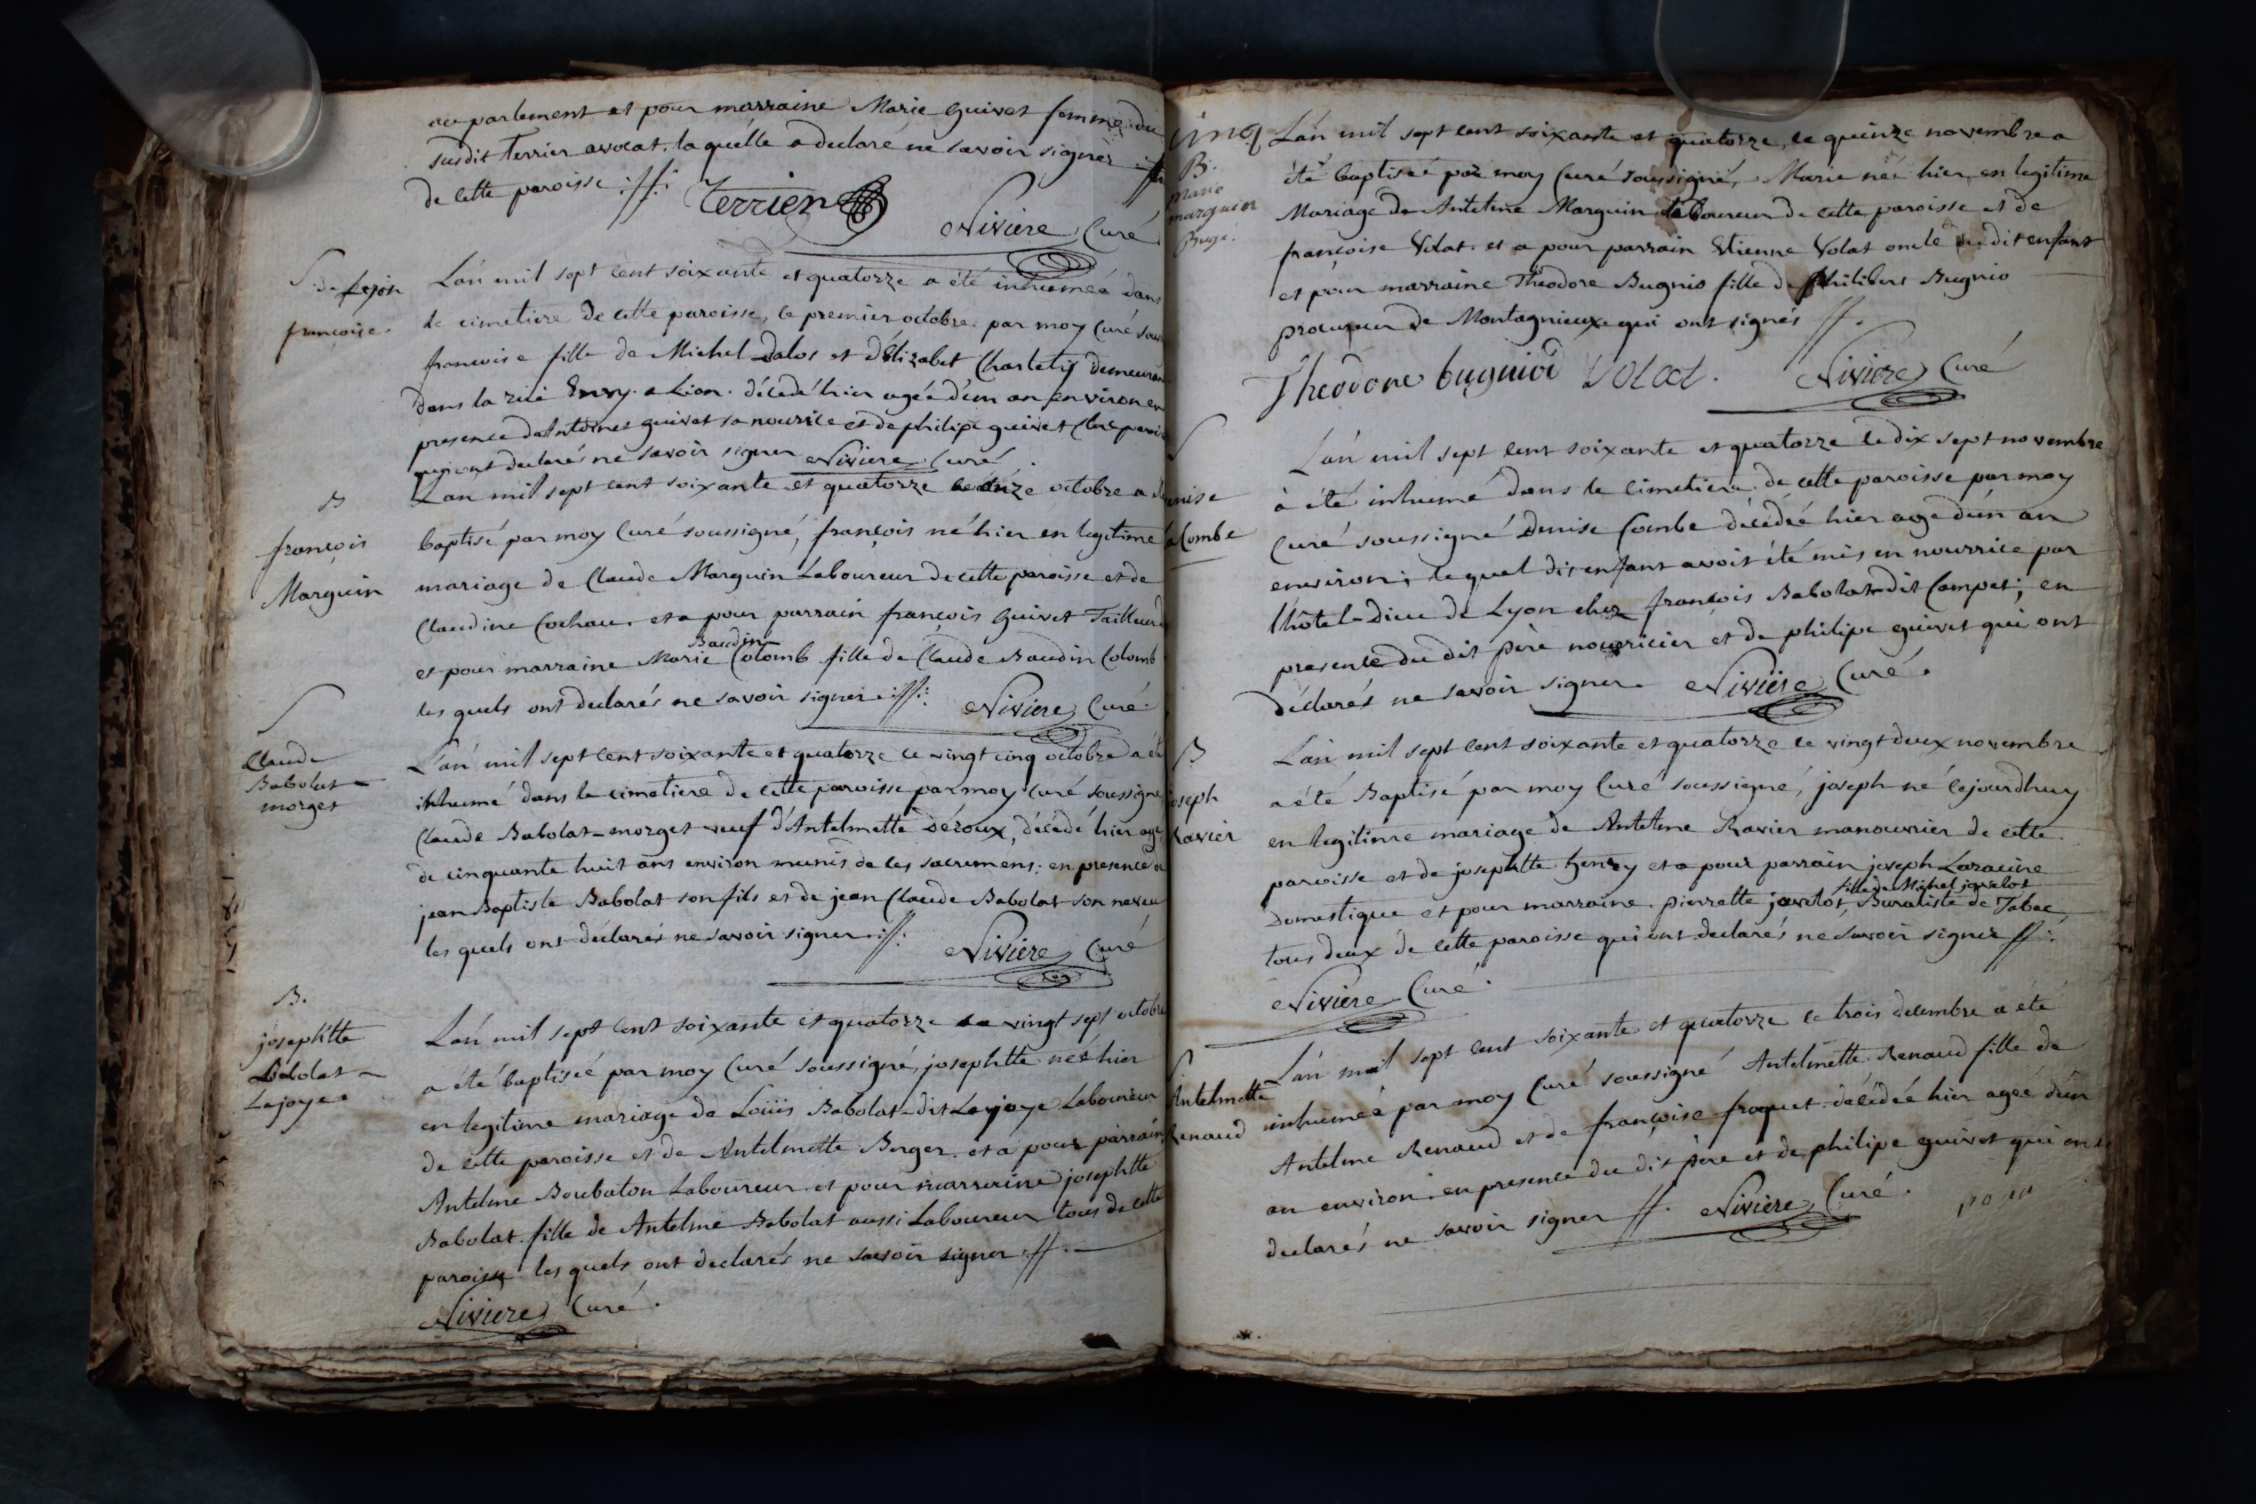 au parlement et pour marraine Marie Guivet femme du
susdit Terrier avocat. la quélle a declaré ne savoir signer
de cette paroisse
Terrier
Niviere Curé
S. de Lejon
francoise.
L'an mil sept cent soixante et quatorze a été inhumée dans
le cimetiere de cette paroisse, le premier octobre. par moy Curé sous
francoise fille de Michel Dalos et d'Elizabet Charlety demeurant
dans la ruë Envy. a Lion. décédé hier agée d'un an environ en
presence d'Antoines guivet sa nourrice et de philipe guivet Clerc
qui ont declarés ne savoir signer Niviere Curé
B
françois
Marguin
L'an mil sept cent soixante et quatorze le onze octobre a été
baptisé par moy Curé soussigné, françois né hier en legitime
mariage de Claude Marguin Laboureur de cette paroisse et de
Claudine Cochau. et a pour parrain françois Guivet Tailleur
Baudin
et pour marraine Marie Colomb fille de Claude Baudin Colomb
les quels ont declarés ne savoir signer
Niviere Curé
S
Claude
Babolat
morget
L'an mil sept cent soixante et quatorze le vingt cinq octobre a été
inhumé dans le cimetiere de cette paroisse par moy Curé soussigné
Claude Babolat-morget veuf d'Antelmette Déroux, décédé hier agé
de cinquante huit ans environ munis de ses sacremens: en presence de
jean Baptiste Babolat son fils et de jean Claude Babolat son neveu
les quels ont déclarés ne savoir signer
Niviere Curé
B.
josephtte
Babolat
Lajoye
L'an mil sept cent soixante et quatorze le vingt sept octobre
a été baptisée par moy Curé soussigné, josephtte neé hier
en legitime mariage de Loüis Babolat-dit Lajoye Laboureur
de cette paroisse et de Antelmette Berger. et a pour parrain
Antelme Boubaton Laboureur et pour marraine josephtte
Babolat fille de Antelme Babolat aussi Laboureur tous de cette
paroisse les quels ont declarés ne savoir signer
Niviere Curé.
cinq
B.
Marie
marguin
L'an mil sept cent soixante et quatorze, le quinze novembre a
été baptisée par moy Curé soussigné, Marie née hier en legitime
Mariage de Antelme Marguin laboureur de cette paroisse et de
françoise Volat. et a pour parrain Etienne Volat oncle du dit enfant
et pour marraine Theodore Bugnio fille de philibert Bugnio
procureur de Montagnieux qui ont signés
Theodore bugniod Volat.
Niviere Curé
S
Denise
la Combe
L'an mil sept cent soixante et quatorze le dix sept novembre
à été inhumé dans le cimetiere de cette paroisse par moy
Curé soussigné Denise Combe décédée hier age d'un an
environ; le quel dit enfant avoit été mis en nourrice par
l'hôtel-Dieu de Lyon chez françois Babolat dit Compet; en
presence du dit père nourricier et de philipe guivet qui ont
déclarés ne savoir signer. Niviere Curé.
B
joseph
Ravier
L'an mil sept cent soixante et quatorze le vingt deux novembre
a été Baptisé par moy Curé soussigné, joseph né cejourdhuy
en legitime mariage de Antelme Ravier manouvrier de cette
paroisse et de josephtte henry et a pour parrain joseph Laracine
fille de Michel javelot
Domestique et pour marraine pierrette javelot, Buraliste de Tabac,
tous deux de cette paroisse qui ont declarés ne savoir signer
Niviere Curé.
S
Antelmette
Renaud
L'an mil sept cent soixante et quatorze le trois decembre a été
inhumée par moy Curé soussigné Antelmette Renaud fille de
Antelme Renaud et de françoise froquet. décédée hier ageé d'un
an environ. en presence du dit père et de philipe guivet qui ont
declarés ne savoir signer. Niviere Curé.